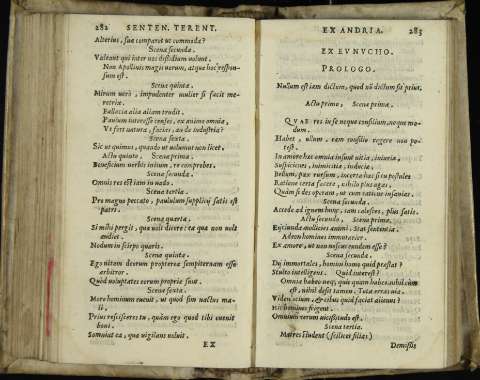 282 SENTEN. TERENT.
Alterius, sua comparet ut commoda?
Scena secunda.
Valeant qui inter nos dissidium volunt.
Non Apollinis magis uerum, atque hoc respon-
sum est.
Scena quinta.
Mirum uerò, impudenter mulier si facit me-
retrix.
Fallacia alia aliam trudit.
Paulum interesse censes, ex animo omnia,
Vt fert natura, facias, an de industria?
Scena sexta.
Sic ut quimus, quando ut uolumus non licet.
Actu quinto, Scena prima.
Beneficium uerbis initum, re comprobes.
Scena secunda.
Omnis res est iam in uado.
Scena tertia.
Pro magno peccato, paululum supplicij satis est
patri.
Scena quarta.
Si mihi pergit, quæ uult dicere: ea quæ non uult
audiet.
Nodum in scirpo quæris.
Scena quinta.
Ego uitam deorum propterea sempiternam esse
arbitror.
Quòd voluptates eorum propriæ sunt.
Scena sexta.
More hominum euenit, ut quod sim nactus ma-
li,
Prius rescisceres tu, quàm ego quod tibi euenit
boni.
Somniat ea, quæ vigilans voluit.
EX
EX ANDRIA. 283
EX EVNVCHO.
PROLOGO.
Nullum est iam dictum, quod nō dictum sit prius.
Actu primo, Scena prima.
QVAE res in se neque consilium, neque mo-
dum.
Habet, ullum, eam consilio regere non po-
test.
In amore hæc omnia insunt uitia, iniuria,
Suspiciones, inimicitiæ, induciæ,
Bellum, pax rursum, incerta hæc si tu postules
Ratione certa facere, nihilo plus agas,
Quàm si des operam, ut cum ratione insanias.
Scena secunda.
Accede ad ignem hunc, iam calesces, plus satis.
Actu secundo, Scena prima.
Eijciunda mollicies animi: Stat sententia.
Adeon homines immutarier.
Ex amore, ut non noscas eundem esse?
Scena secunda.
Dij immortales, homini homo quid præstat?
Stulto intelligens. Quid interest?
Omnia habeo neq; quicquam habeo. nihil cùm
est, nihil defit tamen. Tota erras uia.
Viden' ocium, & cibus quid faciat alienus?
Hic homines frigent.
Omnium rerum uicissitudo est.
Scena tertia.
Matres student (scilicet filias)
Demissis